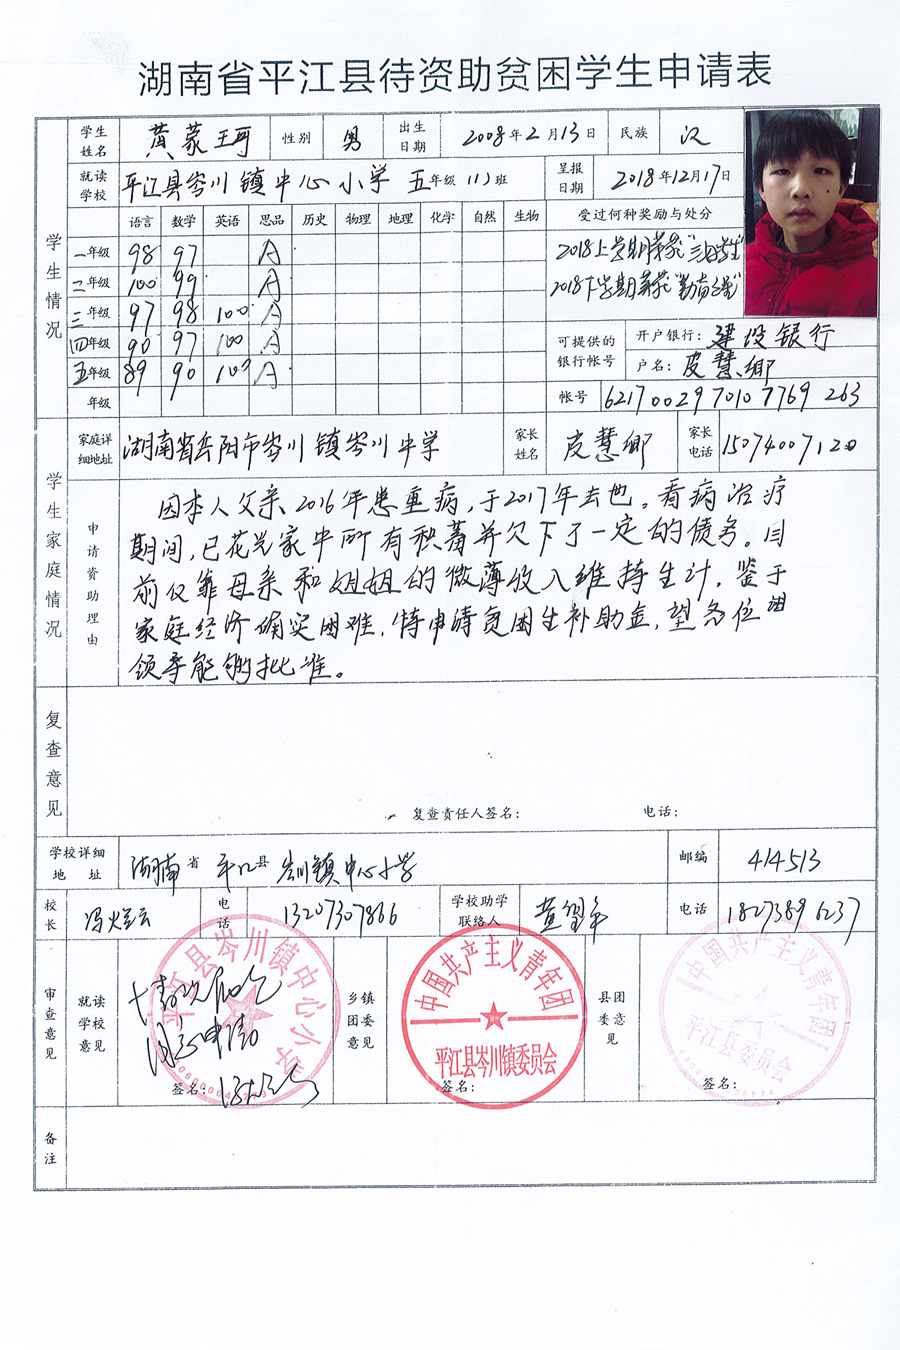 湖南省平江县待资助贫困学生申请表
学生情况
学生姓名 黄蒙 性别 男 出生日期 2008年2月13日 民族 汉
就读学校 平江县岑川镇中心小学 五年级(1)班 呈报日期 2018年12月17日
语言 数学 英语 思品 历史 物理 地理 化学 自然 生物 受过何种奖励与处分
一年级 98 97 A
二年级 100 99 A
三年级 97 98 100 A
四年级 90 97 100 A
五年级 89 90 100 A
年级
2018上学期荣获"三好学生"
2018下学期荣获
可提供的银行帐号 开户银行: 建设银行
户名: 皮慧卿
帐号 6217 0029 7010 7769 263
学生家庭情况
家庭详细地址 湖南省岳阳市岑川镇岑川中学 家长姓名 皮慧卿 家长电话 15074007120
申请资助理由
因本人父亲2016年患重病,于2017年去世。看病治疗
期间,已花光家中所有积蓄并欠下了一定的债务。目
前仅靠母亲和姐姐的微薄收入维持生计。鉴于
家庭经济确实困难,特申请贫困生补助金,望各位
领导能够批准。
复查意见
复查责任人签名: 电话:
学校详细地址 湖南省平江县岑川镇中心小学 邮编 414513
校长 电话 13207307866 学校助学联络人 电话 18273896237
审查意见
就读学校意见 同意申请 签名:
平江县岑川镇中心小学
乡镇团委意见 签名:
中国共产主义青年团
平江县岑川镇委员会
县团委意见 签名:
中国共产主义青年团
平江县委员会
备注